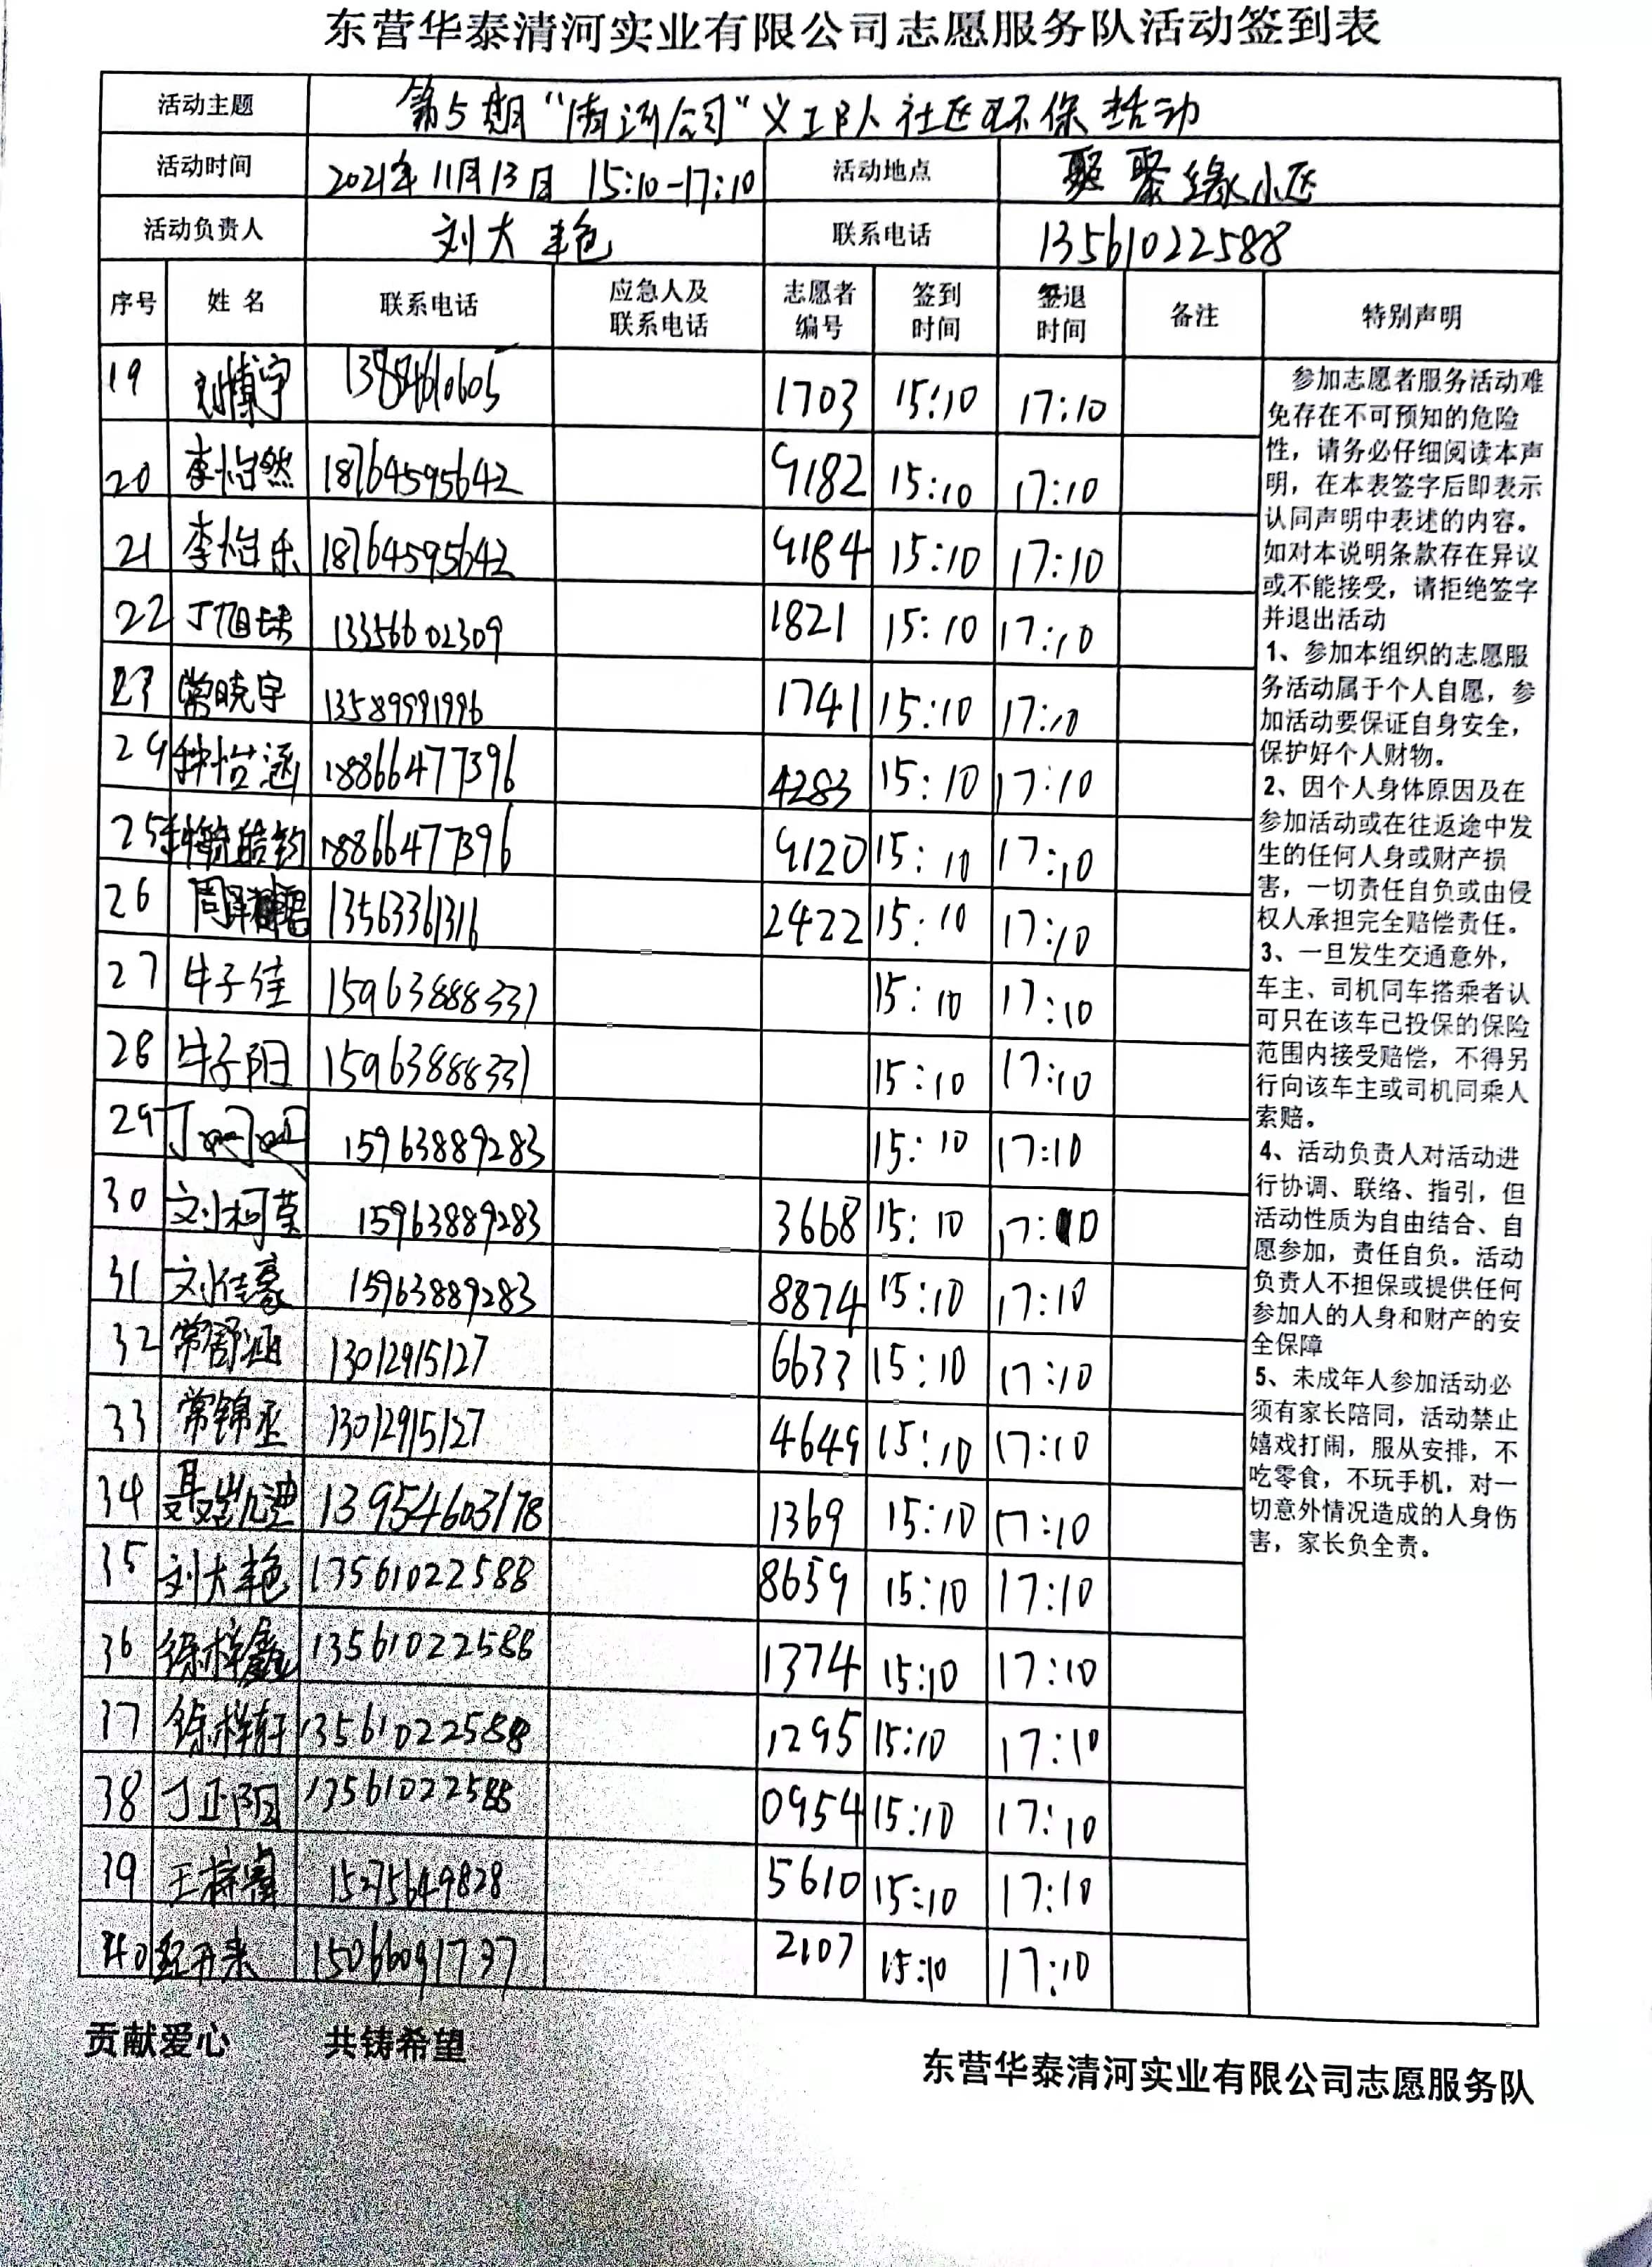 东营华泰清河实业有限公司志愿服务队活动签到表
活动主题 第5期“清河公司”义工队社区环保活动
活动时间 2021年11月13日 15:10-17:10 活动地点 聚缘小区
活动负责人 刘大艳 联系电话 13561022588
序号 姓名 联系电话 应急人及联系电话 志愿者编号 签到时间 签退时间 备注 特别声明
19 刘博宇 1703 15:10 17:10
20 李怡然 18764595642 9182 15:10 17:10
21 李怡乐 18764595642 9184 15:10 17:10
22 13356602309 1821 15:10 17:10
23 常晓宇 13589991996 1741 15:10 17:10
24 种怡涵 18866477396 4283 15:10 17:10
25 18866477396 9120 15:10 17:10
26 13563361316 2422 15:10 17:10
27 牛子佳 15963888337 15:10 17:10
28 牛子阳 15963888337 15:10 17:10
29 15963889283 15:10 17:10
30 刘柯莹 15963889283 3668 15:10 17:10
31 刘佳豪 15963889283 8874 15:10 17:10
32 常舒涵 13012915127 6633 15:10 17:10
33 常锦丞 13012915127 4649 15:10 17:10
34 13954603178 1369 15:10 17:10
35 刘大艳 13561022588 8659 15:10 17:10
36 徐梓鑫 13561022588 1374 15:10 17:10
37 徐梓轩 13561022588 1295 15:10 17:10
38 丁正阳 13561022588 0954 15:10 17:10
39 王梓睿 15275649828 5610 15:10 17:10
40 15066091737 2107 15:10 17:10
参加志愿者服务活动难
免存在不可预知的危险
性，请务必仔细阅读本声
明，在本表签字后即表示
认同声明中表述的内容。
如对本说明条款存在异议
或不能接受，请拒绝签字
并退出活动
1、参加本组织的志愿服
务活动属于个人自愿，参
加活动要保证自身安全，
保护好个人财物。
2、因个人身体原因及在
参加活动或在往返途中发
生的任何人身或财产损
害，一切责任自负或由侵
权人承担完全赔偿责任。
3、一旦发生交通意外，
车主、司机同车搭乘者认
可只在该车已投保的保险
范围内接受赔偿，不得另
行向该车主或司机同乘人
索赔。
4、活动负责人对活动进
行协调、联络、指引，但
活动性质为自由结合、自
愿参加，责任自负。活动
负责人不担保或提供任何
参加人的人身和财产的安
全保障
5、未成年人参加活动必
须有家长陪同，活动禁止
嬉戏打闹，服从安排，不
吃零食，不玩手机，对一
切意外情况造成的人身伤
害，家长负全责。
贡献爱心 共铸希望
东营华泰清河实业有限公司志愿服务队